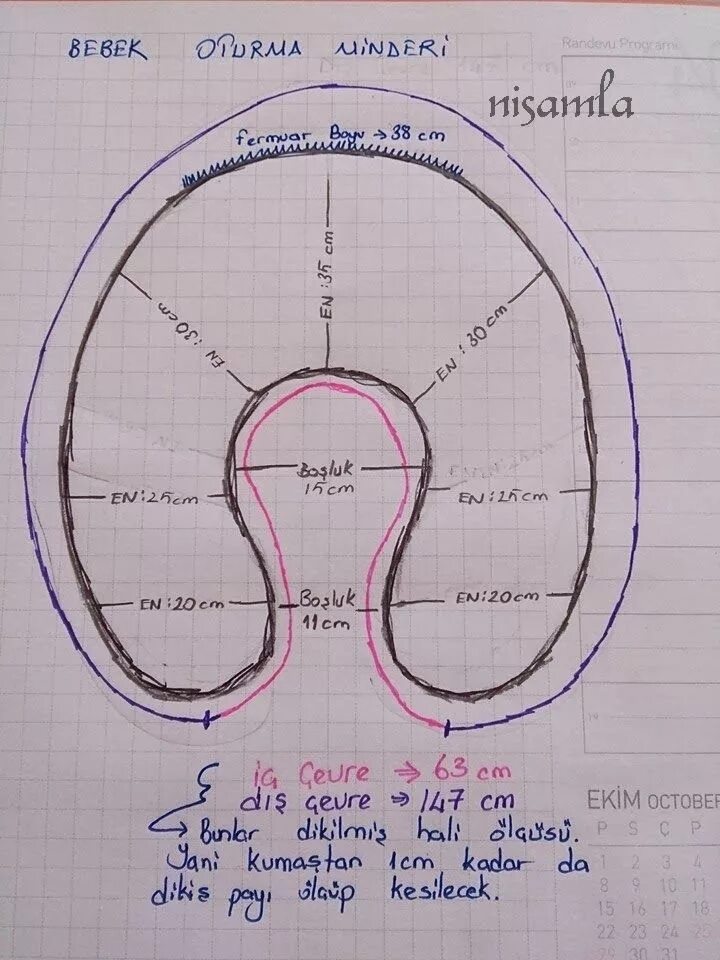 BEBEK OTURMA MİNDERİ
Randevu Programı
nisamla
fermuar Boyu → 38 cm
EN : 35 cm
EN : 30 cm
EN : 30 cm
Boşluk
15cm
EN : 25cm
EN : 25cm
EN : 20 cm
Boşluk
11 cm
EN : 20 cm
iç Çevre ⇒ 63 cm
dış çevre ⇒ 147 cm
→ Bunlar dikilmiş hali ölçüsü.
Yani kumaştan 1cm kadar da
dikiş payı ölçüp kesilecek.
EKİM OCTOBER
P S Ç P
1 2 3 4
8 9 10 11
15 16 17 18
22 23 24 25
29 30 31